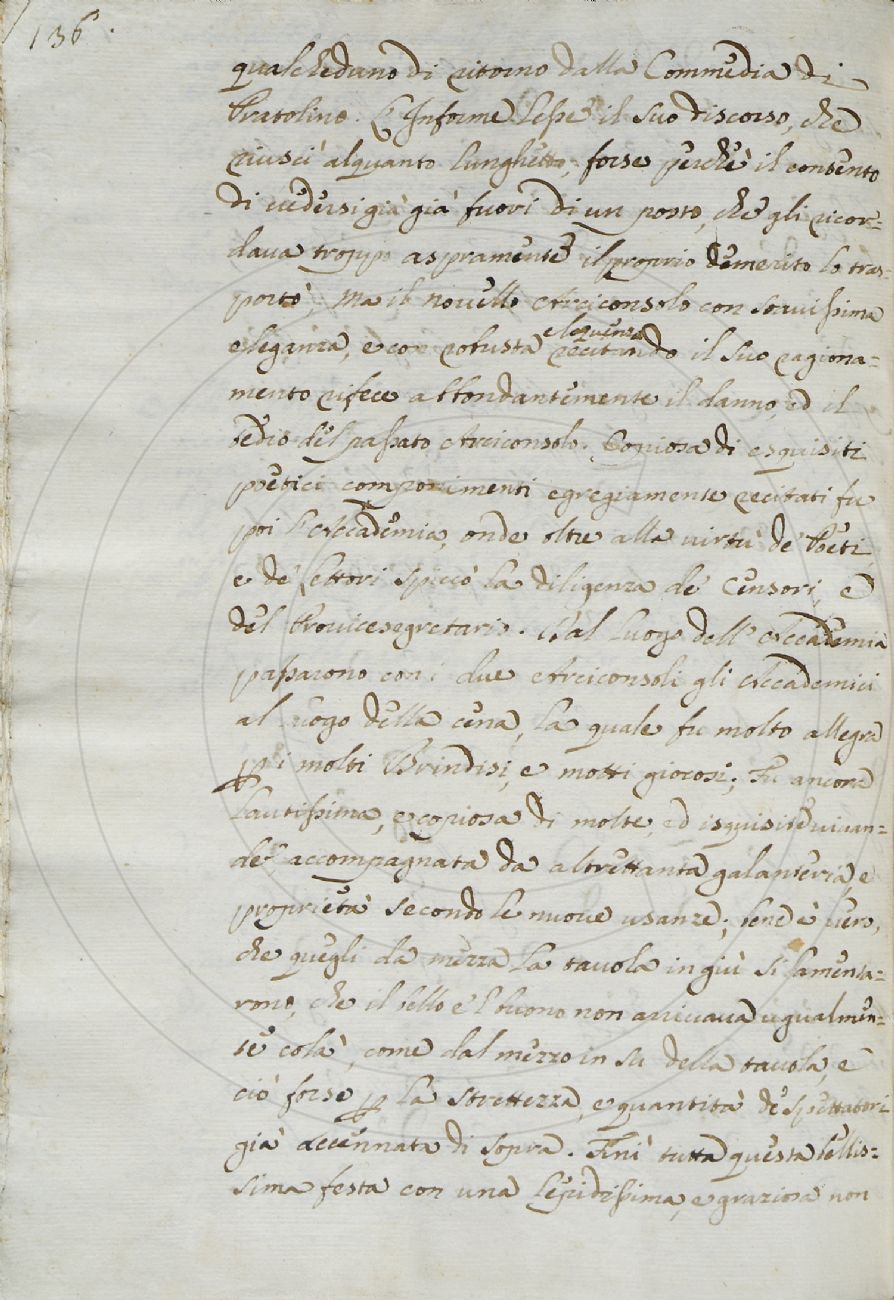 136.
qualchedano di ritorno dalla Commedia di
Pratolino. L'Informe lesse il suo discorso, che
riuscì alquanto lunghetto, forse perchè il contento
di vedersi già già fuori di un posto, che gli ricor=
dava troppo aspramente il proprio demerito lo tras=
portò; Ma il novello Arciconsolo con soavissima
eleganza, e con robusta eloquenza recitando il suo ragiona=
mento rifece abbondantemente il danno, ed il
tedio del passato Arciconsolo. Copiosa di esquisiti
poetici componimenti egregiamente recitati fu
poi l'Accademia, onde oltre alla virtù de' Poeti
e de' lettori spiccò la diligenza de' Censori, e
del Provicesegretario. Dal luogo dell'Accademia
passarono con i due Arciconsoli gli Accademici
al luogo della cena, la quale fu molto allegra
p i molti Brindisi, e motti giocosi; Fu ancora
lautissima, e copiosa di molte, ed isquisite vivan=
de, accompagnata da altrettanta galanteria e
proprietà secondo le nuove usanze; bene è vero,
che quegli da mezza la tavola in giù si lamenta=
rono, che il bello e 'l buono non arrivava ugualmen=
te colà, come dal mezzo in su della tavola, e
ciò forse p la strettezza, e quantità de' spettatori
già accennata di sopra. Finì tutta questa bellis=
sima festa con una lepidissima, e graziosa non